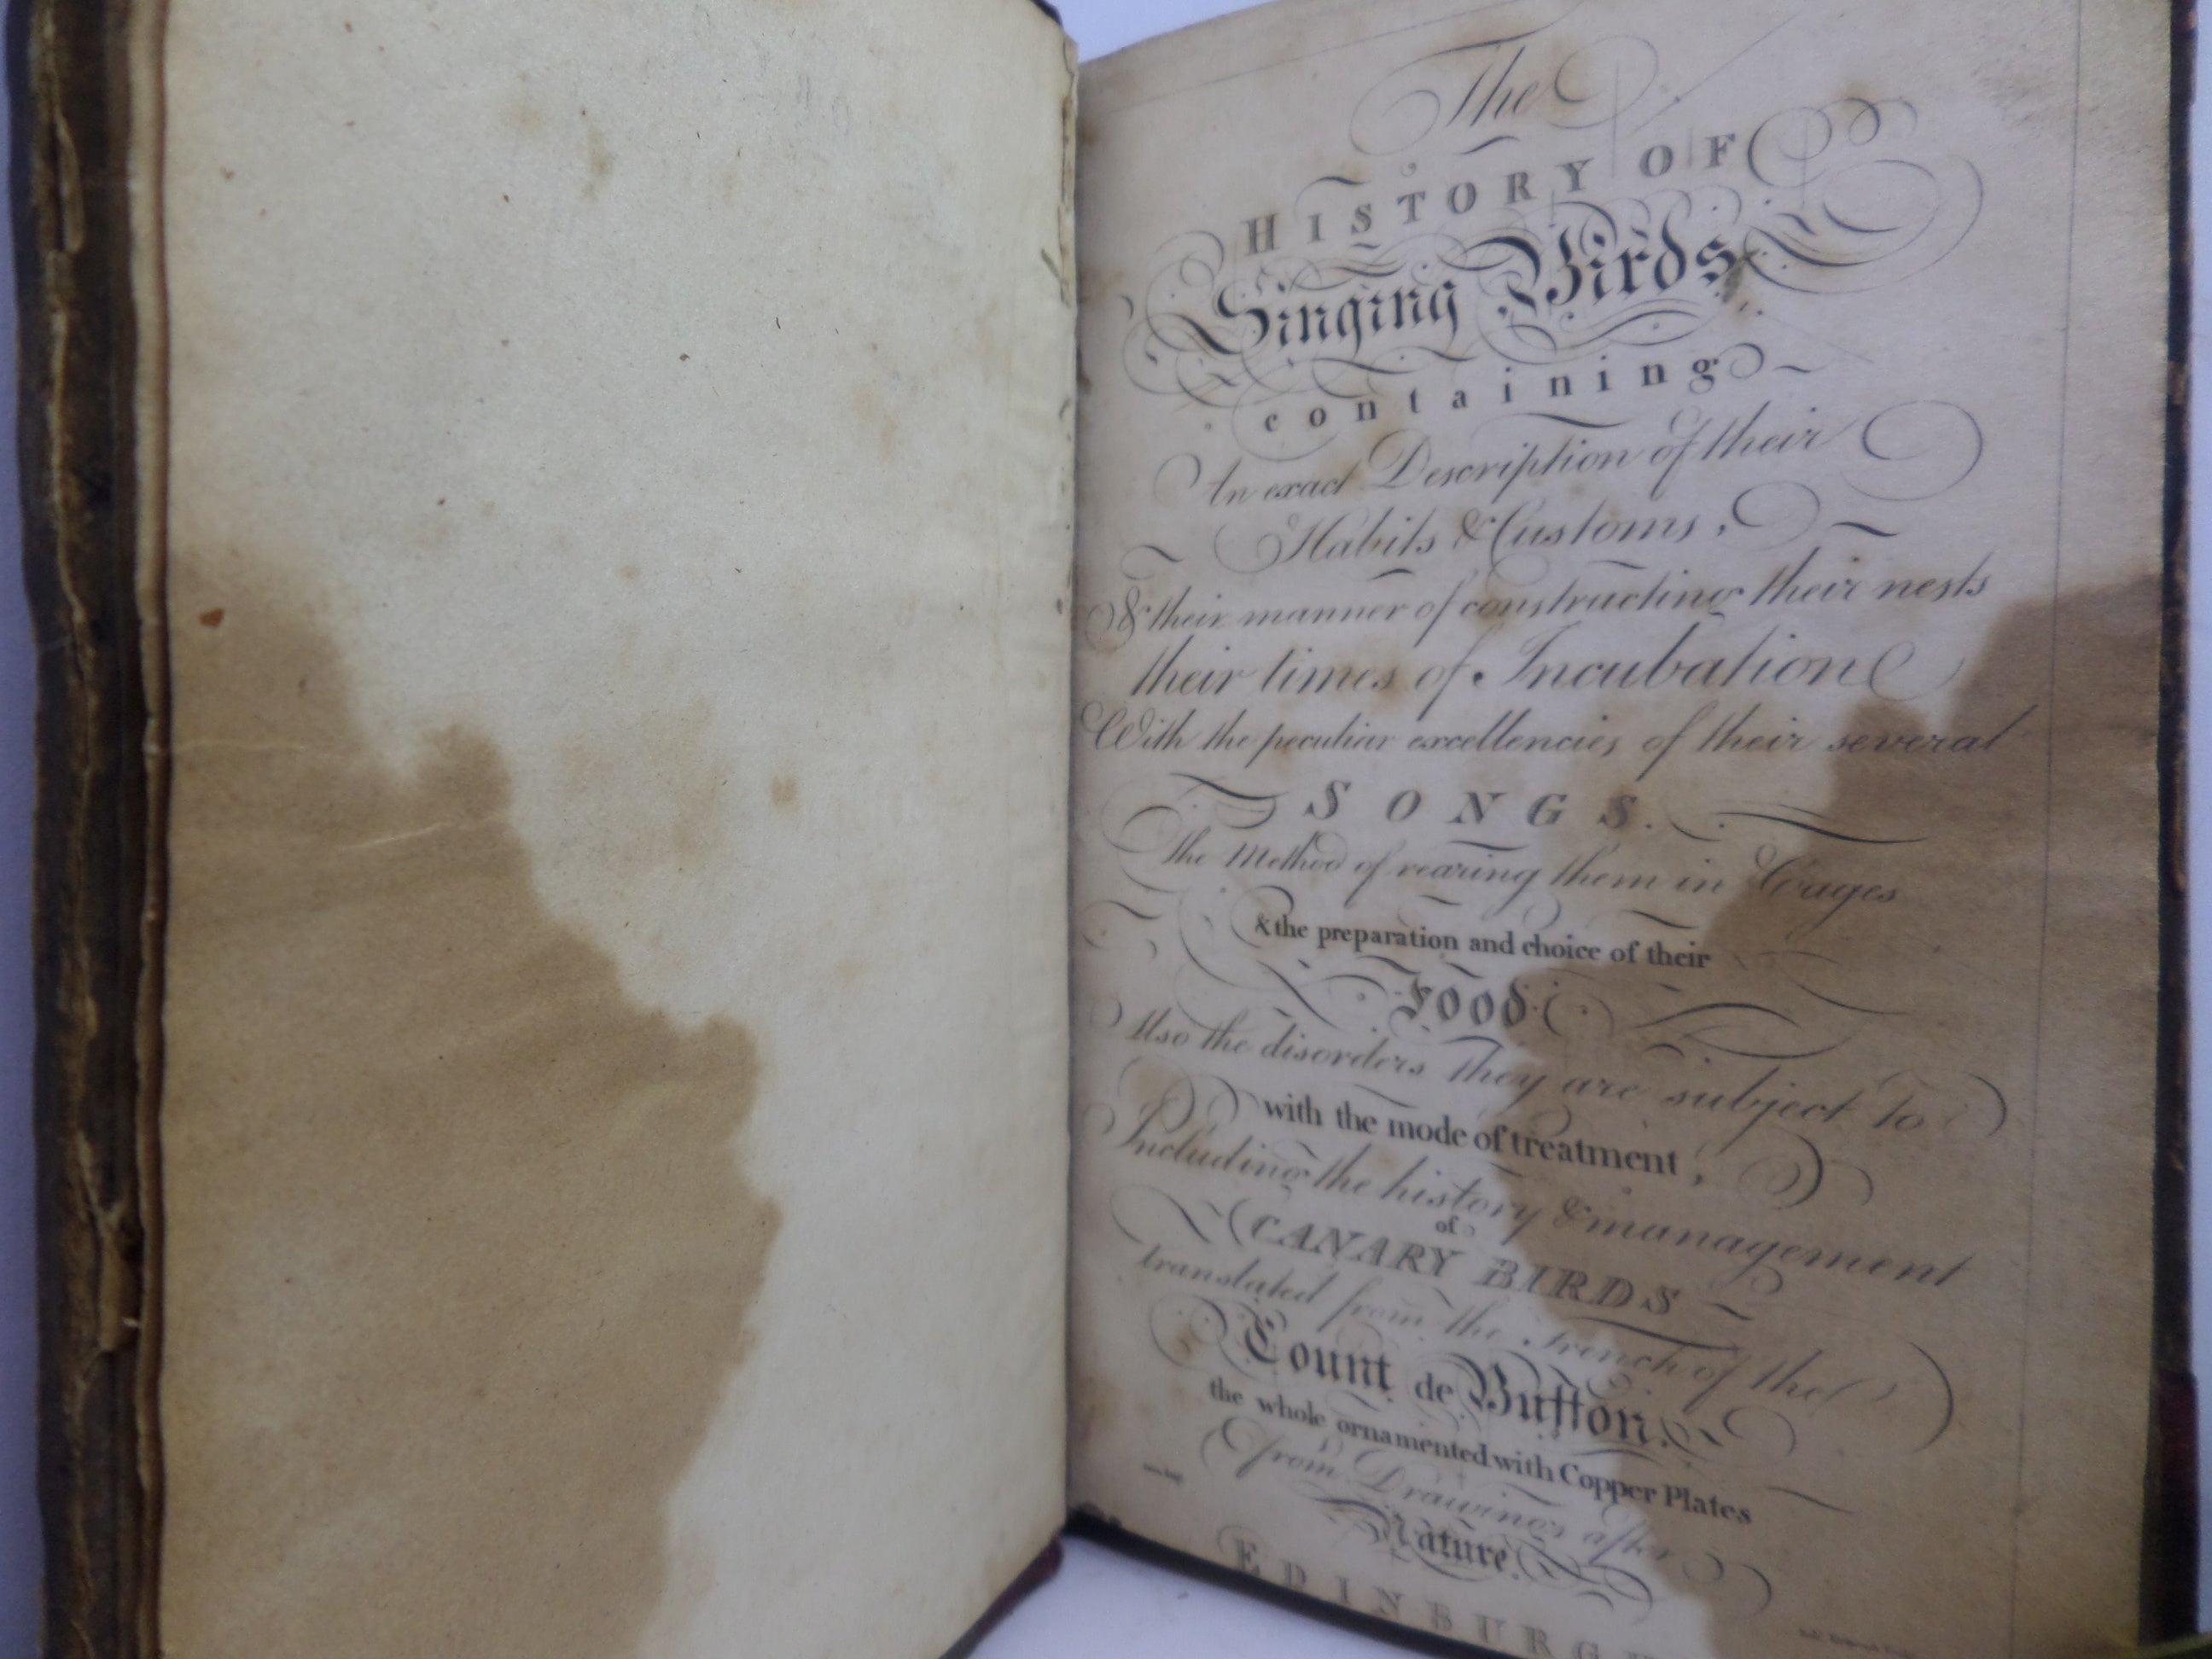 The
HISTORY OF
Singing Birds
containing
An exact Description of their
Habits & Customs,
& their manner of constructing their nests
their times of Incubation
With the peculiar excellencies of their several
SONGS.
The Method of rearing them in Cages
& the preparation and choice of their
Food
Also the disorders they are subject to
with the mode of treatment,
Including the history & management
of
CANARY BIRDS
translated from the French of the
Count de Buffon.
the whole ornamented with Copper Plates
from Drawings after
Nature.
EDINBURGH